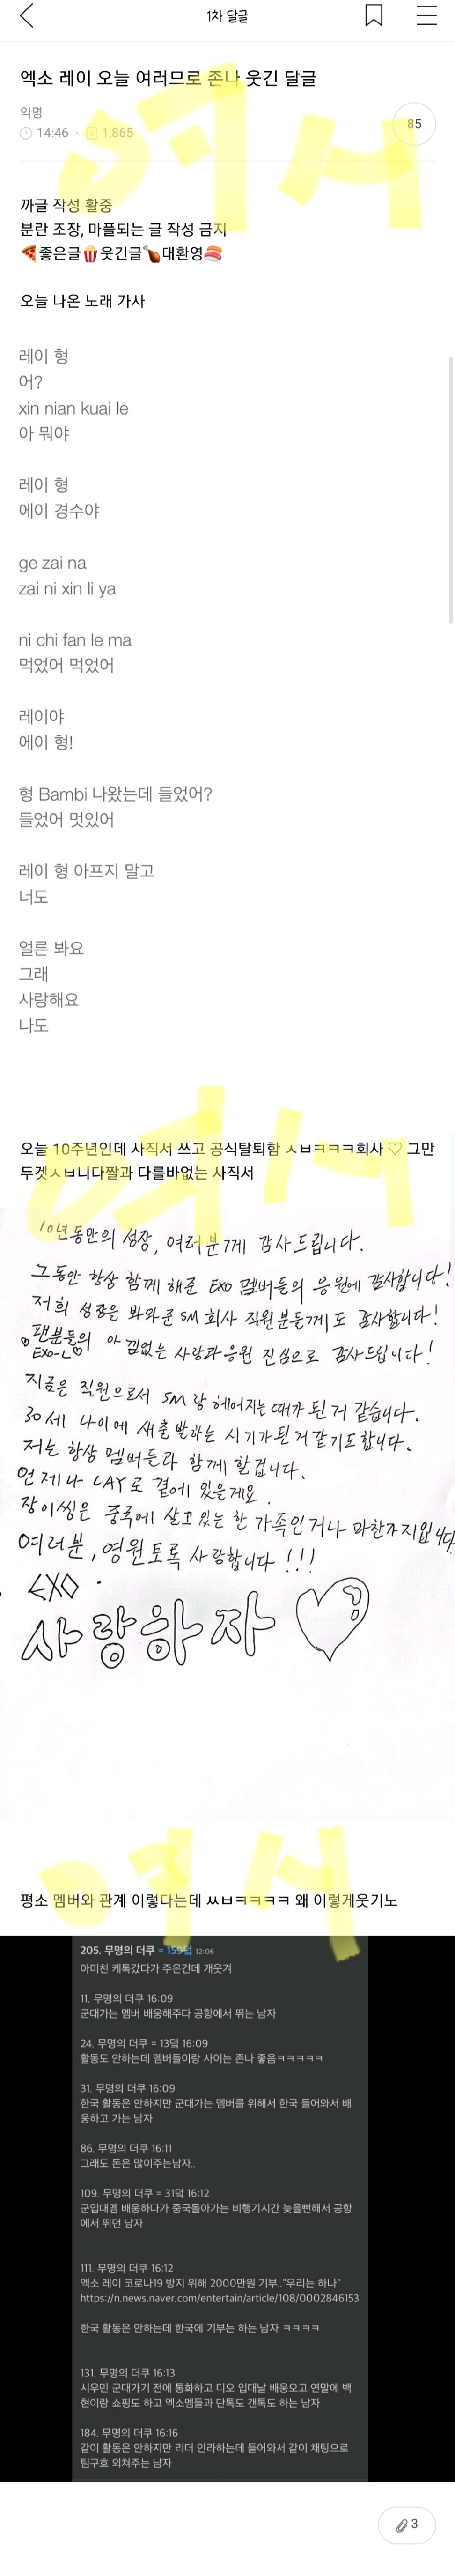 1차 달글
엑소 레이 오늘 여러므로 존나 웃긴 달글
익명
14:46 · 1,865
85
여시
까글 작성 활중
분란 조장, 마플되는 글 작성 금지
🍕좋은글🍿웃긴글🍗대환영🍣
오늘 나온 노래 가사
레이 형
어?
xin nian kuai le
아 뭐야
레이 형
에이 경수야
ge zai na
zai ni xin li ya
ni chi fan le ma
먹었어 먹었어
레이야
에이 형!
형 Bambi 나왔는데 들었어?
들었어 멋있어
레이 형 아프지 말고
너도
얼른 봐요
그래
사랑해요
나도
여시
오늘 10주년인데 사직서 쓰고 공식탈퇴함 ㅅㅂㅋㅋㅋ회사 ♡ 그만
두겟ㅅㅂ니다짤과 다를바없는 사직서
10년동안의 성장, 여러분께 감사드립니다.
그동안 항상 함께해준 EXO 멤버들의 응원에 감사합니다!
저희 성장은 봐와준 SM 회사 직원분들께도 감사합니다!
♡팬분들의 아낌없는 사랑과 응원 진심으로 감사드립니다!
EXO-L♡
지금은 직원으로서 SM랑 헤어지는 때가 된 거 같습니다.
30세 나이에 새출발하는 시기가 된거 같기도합니다.
저는 항상 멤버들과 함께 할겁니다.
언제나 LAY로 곁에 있을게요.
장이씽은 중국에 살고있는 한 가족인거나 마찬가지입니다
여러분, 영원토록 사랑합니다!!!
EXO
사랑하자 ♡
여시
평소 멤버와 관계 이렇다는데 ㅆㅂㅋㅋㅋㅋ 왜 이렇게웃기노
205. 무명의 더쿠 = 159덬 12:06
아미친 케톡갔다가 주은건데 개웃겨
11. 무명의 더쿠 16:09
군대가는 멤버 배웅해주다 공항에서 뛰는 남자
24. 무명의 더쿠 = 13덬 16:09
활동도 안하는데 멤버들이랑 사이는 존나 좋음ㅋㅋㅋㅋㅋ
31. 무명의 더쿠 16:09
한국 활동은 안하지만 군대가는 멤버를 위해서 한국 들어와서 배
웅하고 가는 남자
86. 무명의 더쿠 16:11
그래도 돈은 많이주는남자..
109. 무명의 더쿠 = 31덬 16:12
군입대멤 배웅하다가 중국돌아가는 비행기시간 늦을뻔해서 공항
에서 뛰던 남자
111. 무명의 더쿠 16:12
엑소 레이 코로나19 방지 위해 2000만원 기부.."우리는 하나"
https://n.news.naver.com/entertain/article/108/0002846153
한국 활동은 안하는데 한국에 기부는 하는 남자 ㅋㅋㅋㅋ
131. 무명의 더쿠 16:13
시우민 군대가기 전에 통화하고 디오 입대날 배웅오고 연말에 백
현이랑 쇼핑도 하고 엑소멤들과 단톡도 갠톡도 하는 남자
184. 무명의 더쿠 16:16
같이 활동은 안하지만 리더 인라하는데 들어와서 같이 채팅으로
팀구호 외쳐주는 남자
3